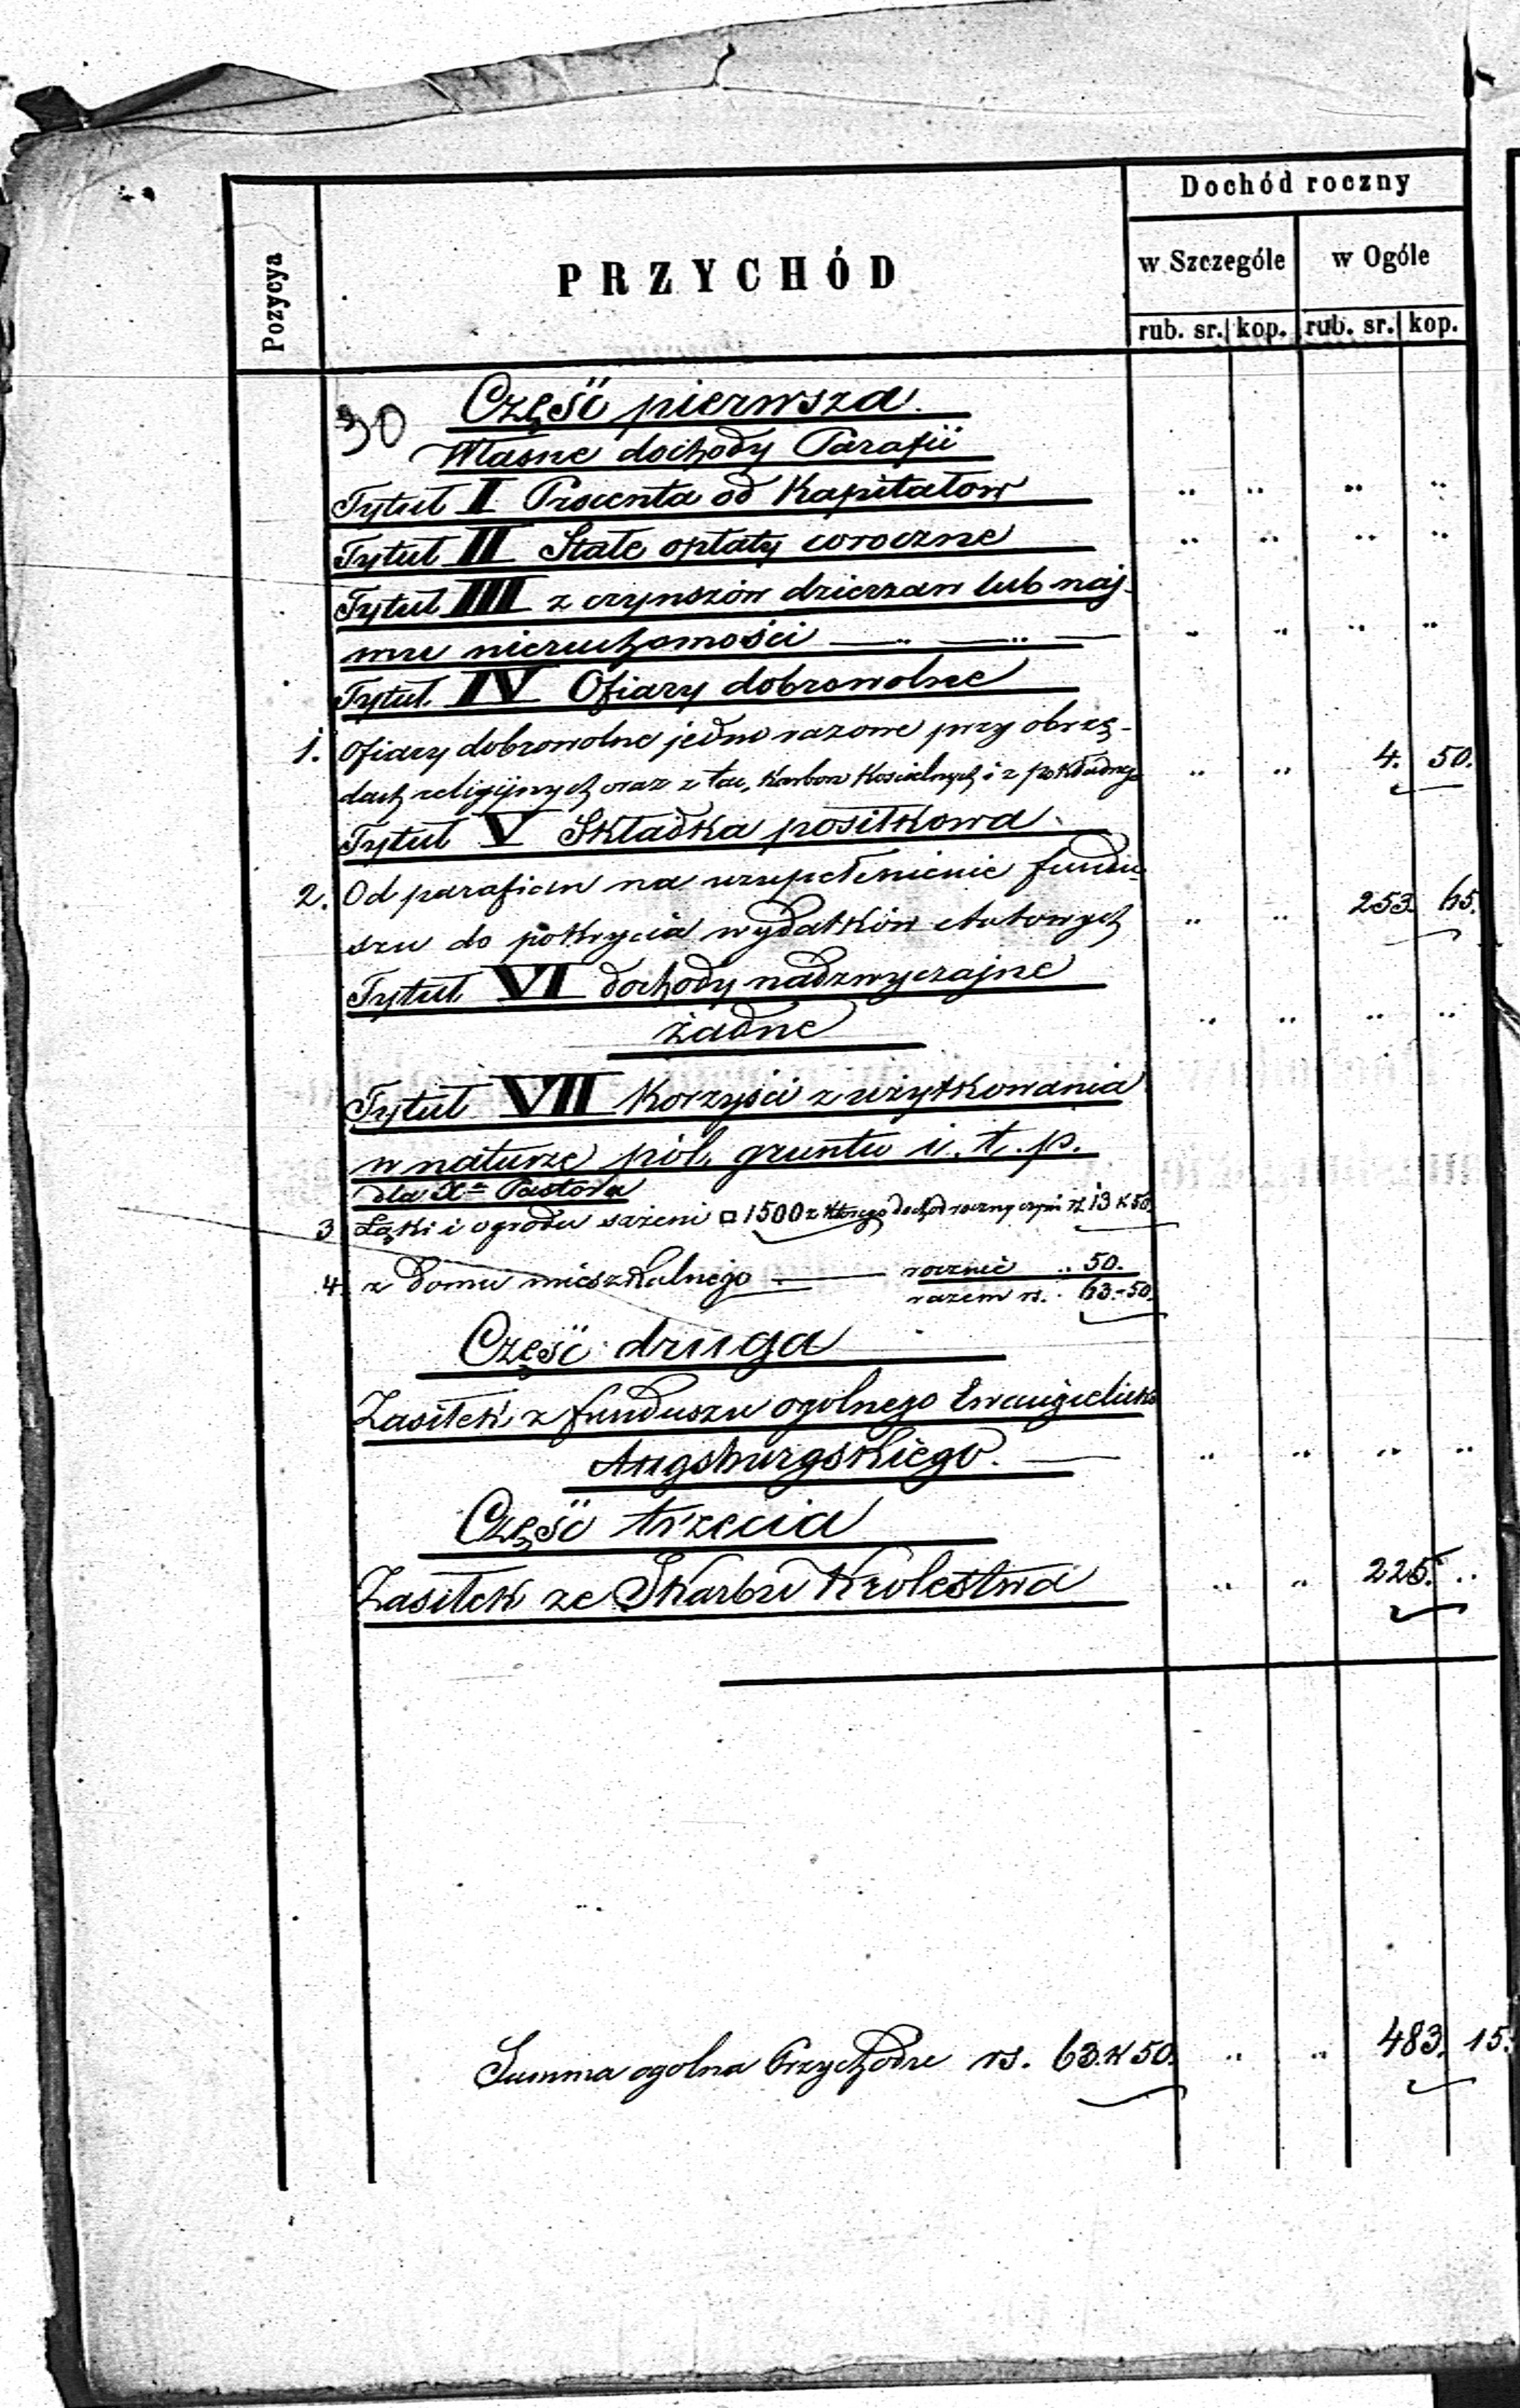 Dochód roczny
Pozycya
PRZYCHÓD
w Szczególe w Ogóle
rub. sr. kop. rub. sr. kop.
30 Część pierwsza.
Własne dochody Parafii
Tytuł I Procenta od Kapitałow
Tytuł II Stałe opłaty coroczne
Tytuł III z czynszów dzierzaw lub naj-
mu nieruchomości
Tytuł IV Ofiary dobrowolne
1. Ofiary dobrowolne jedno razowe przy obrzę-
dach religijnych oraz z tac, Karbon Kościelnych i z pokładnego 4. 50.
Tytuł V Składka posiłkowa
2. Od parafian na uzupełnienie fundu-
szu do pokrycia wydatków etatowych 253. 65.
Tytuł VI dochody nadzwyczajne
żadne
Tytuł VII Korzyści z użytkowania
w naturze pól, gruntu i. t. p.
dla Xa Pastora
3 Łąki i ogrodu sążeni □ 1500 z którego dochód roczny czyni rs 13 k 50.
4. z domu mieszkalnego rocznie 50.
razem rs. 63.-50.
Część druga
Zasiłek z funduszu ogolnego Ewangielicko
Augsburgskiego.
Część trzecia
Zasiłek ze Skarbu Krolestwa 225.
Summa ogolna Przychodu rs. 63. k 50. 483. 15.